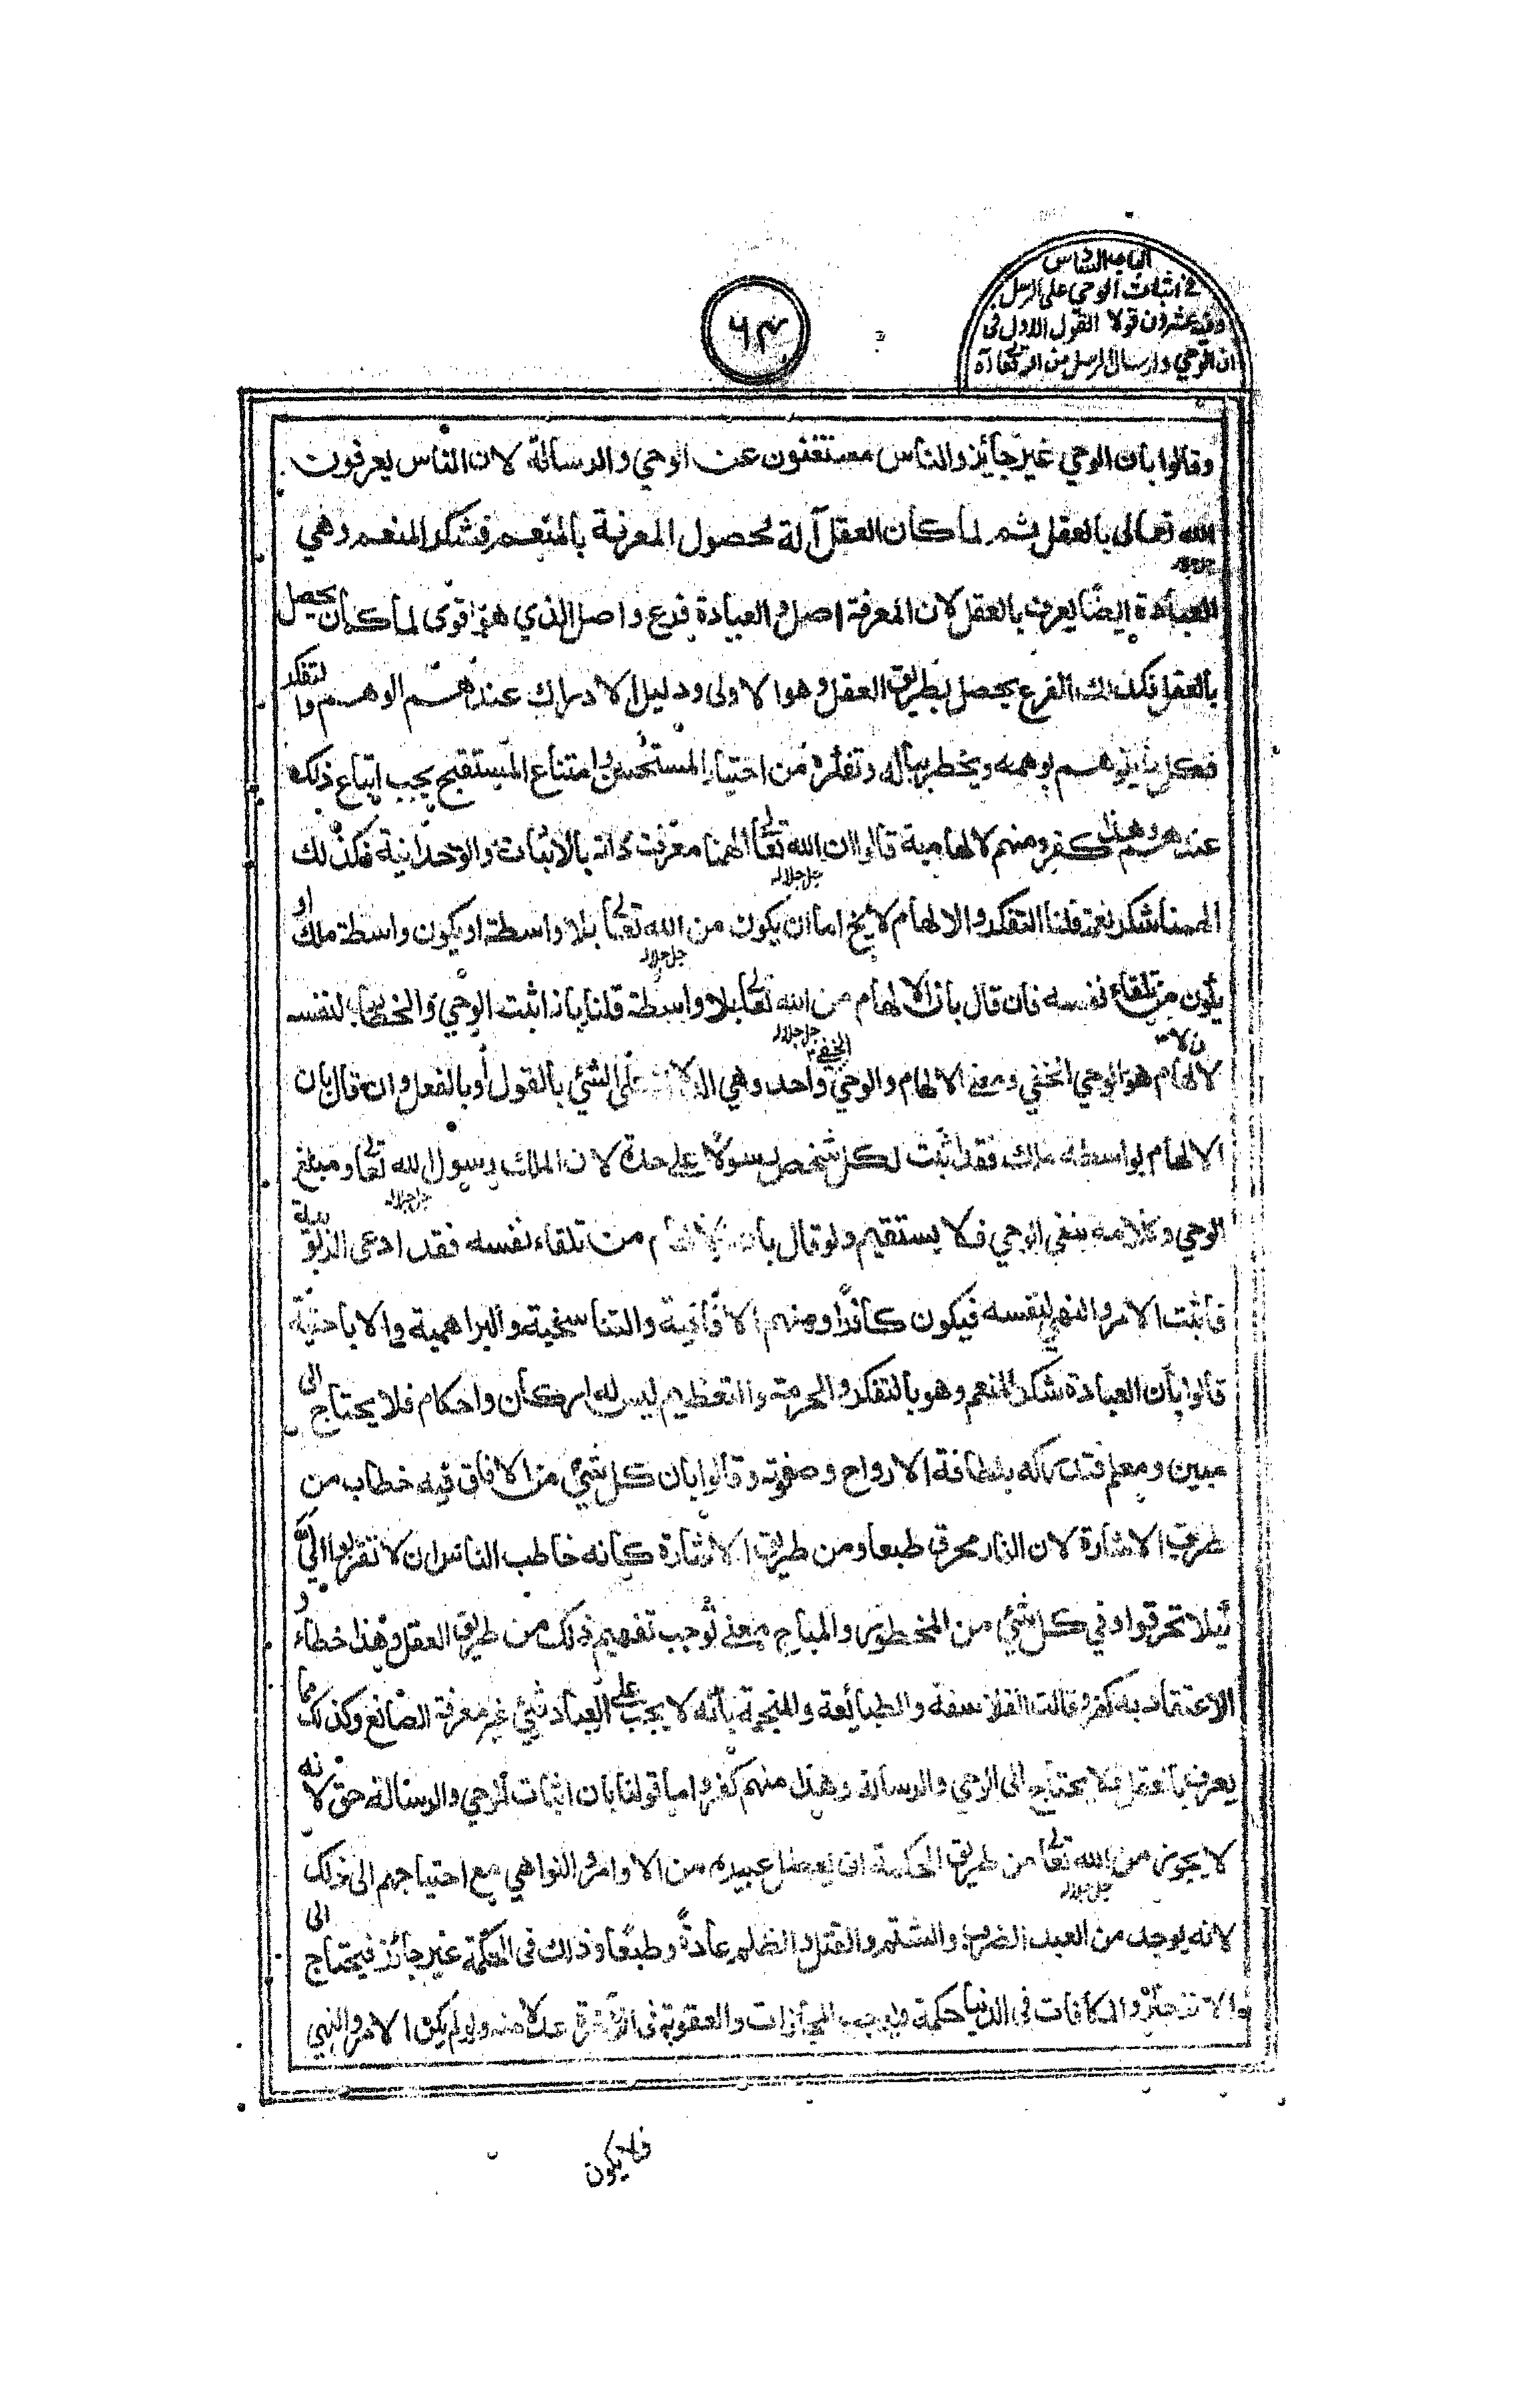 الباب السادس
في اثبات الوحي على الرسل
وفيه عشرون قولا القول الاول في
ان الوحي وارسال الرسل من الله تعالى
٦٣
وقالوا بان الوحي غير جائز والناس مستغنون عن الوحي والرسالة لان الناس يعرفون
الله تعالى بالعقل ثم لما كان العقل آلة لحصول المعرفة بالمنعم فشكر المنعم وهي
جل جلاله
العبادة ايضًا يعرف بالعقل لان المعرفة اصل والعبادة فرع واصل الذي هو اقوى لما كان يحصل
بالعقل فكذلك الفرع يحصل بطريق العقل وهو الاولى ودليل الادراك عندهم الوهم والتفكر
فكل ما يتوهم بوهمه ويخطر بباله وتفكره من اختيار المستحسن وامتناع المستقبح يجب اتباع ذلك
عندهم وهذا كفر ومنهم الالهامية قالوا ان الله تعالى الهمنا معرفت ذاته بالاثبات والوحدانية فكذلك
جل جلاله
الهمنا شكر نعمته قلنا التفكر والالهام لا يخ اما ان يكون من الله تعالى بلا واسطة او يكون واسطة ملك او
جل جلاله
يكون من تلقاء نفسه فان قال بان الالهام من الله تعالى بلا واسطة قلنا باذ اثبت الوحي والخطاب لنفسه
جل جلاله
لان الالهام هو الوحي الخفي ومعنى الالهام والوحي الخفي واحد وهي الدلالة على الشئ بالقول أو بالفعل وان قال بان
الالهام بواسطه ملك فقد اثبت لكل شخص رسولا على حدة لان الملك رسول الله تعالى ومبلغ
جل جلاله
الوحي وكلامه ينفي الوحي فلا يستقيم ولو قال بان الالهام من تلقاء نفسه فقد ادعى الربوبية
فاثبت الامر والنهي لنفسه فيكون كافرًا ومنهم الافاقية والتناسخية والبراهمية والاباحتية
قالوا بان العبادة شكر المنعم وهو بالتفكر والحرمة والتعظيم ليس له اركان واحكام فلا يحتاج الى
مبين ومعلم فتدركه بلطافة الارواح وصفوته وقالوا بان كل شئ من الافاق فيه خطاب من
طريق الاشارة لان النار محرق طبعا ومن طريق الاشارة كانه خاطب الناس ان لا تقربوا اليَّ
ليلا تحرقوا وفي كل شئ من المحظور والمباح معنى توجب تفهيم ذلك من طريق العقل وهذا خطاء و
الاعتقاد به كفر وقالت الفلاسفة والطبائعة والمنجمة بانه لا يجب على العباد شئ غير معرفة الصانع وكذلك مما
يعرف بالعقل فلا يحتاج الى الوحي والرسالة وهذا منهم كفر واما قولنا بان اثبات الوحي والرسالة حق لانه
لا يجوز من الله تعالى من طريق الحكمة ان يعطل عبيده من الاوامر والنواهي مع احتياجهم الى ذلك
جل جلاله
لانه يوجد من العبد الضرب والشتم والقتل والظلم عادةً وطبعًا وذلك في الحكمة غير جائز فيحتاج الى
والمكافات في الدنيا حكمة ويوجب المجازات والعقوبة في الآخرة عدلا منه ولو لم يكن الامر والنهي
فلا يكون